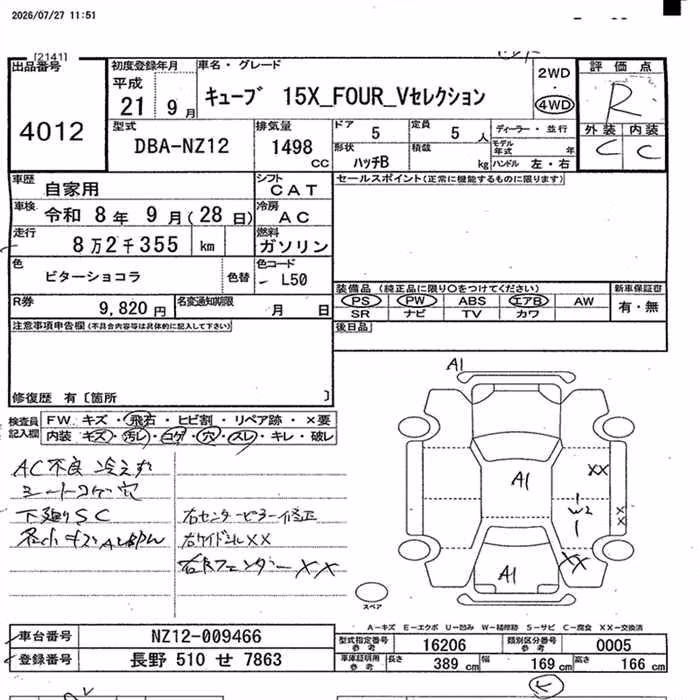 2026/07/27 11:51
[2141]
出品番号 4012
初度登録年月 平成 21年 9月
車名・グレード キューブ 15X_FOUR_Vセレクション
2WD ・ 4WD
評価点 R
外装 内装
C C
型式 DBA-NZ12
排気量 1498 CC
ドア 5 定員 5 人
形状 ハッチB 積載 kg
ディーラー・並行
モデル年式 年
ハンドル 左・右
車歴 自家用
シフト CAT
車検 令和 8年 9月(28日)
冷房 AC
走行 8万2千355 km
燃料 ガソリン
色 ビターショコラ 色替
色コード - L50
R券 9,820円 名変通知期限 月 日
セールスポイント(正常に機能するものに限ります)
装備品 (純正品に限り○をつけてください)
PS PW ABS エアB AW
SR ナビ TV カワ
新車保証書 有・無
後日品
注意事項申告欄(不具合内容等は具体的に記入して下さい)
修復歴 有〔箇所 〕
検査員記入欄
FW. キズ・飛石・ヒビ割・リペア跡・×要
内装 キズ・汚レ・コゲ・穴・スレ・キレ・破レ
AC不良 冷えず
シートコゲ穴
下廻りSC
右センターピラー修正
右サイドシルXX
右Rフェンダー XX
A1
A1
XX
W2
XX
XX
A1
スペア
A-キズ E-エクボ U-凹み W-補修跡 S-サビ C-腐食 XX-交換済
車台番号 NZ12-009466
登録番号 長野 510 せ 7863
型式指定番号 参考 16206 類別区分番号 参考 0005
車庫証明用 参考 長さ 389 cm 幅 169 cm 高さ 166 cm